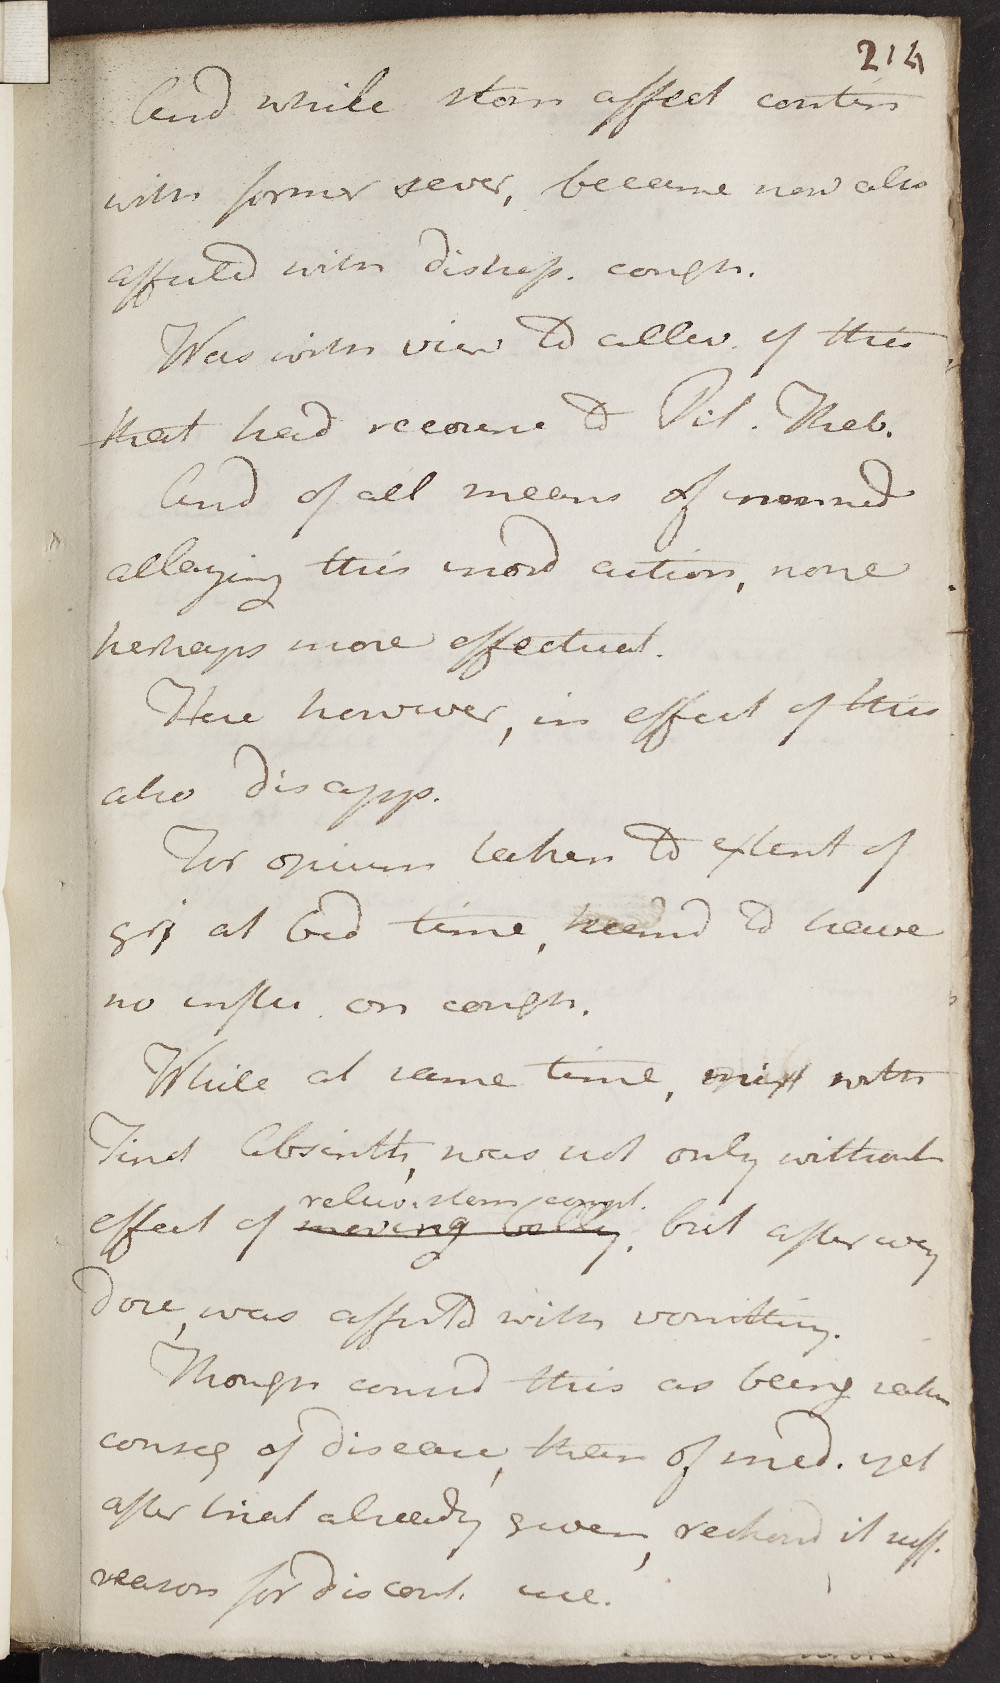 214
And while stom affect contin
with former sever, became now also
affected with distress. cough.
Was with view to allev. of this
that had recourse to Pil. Theb.
And of all means of
allaying this morb action, none
perhaps more effectual.
Here however, in effect of this
also disapp.
For opium taken to extent of
gri at bed time, seemd to have
no influ. on cough.
While at same time, mixt with
Tinct Absinth, was not only without
reliev. stom compl.
effect of moving belly, but after every
dose, was affected with vomitting.
Though consid this as being rather
conseq of disease, than of med. yet
after trial already given, reckond it suff.
reason for discont. use.